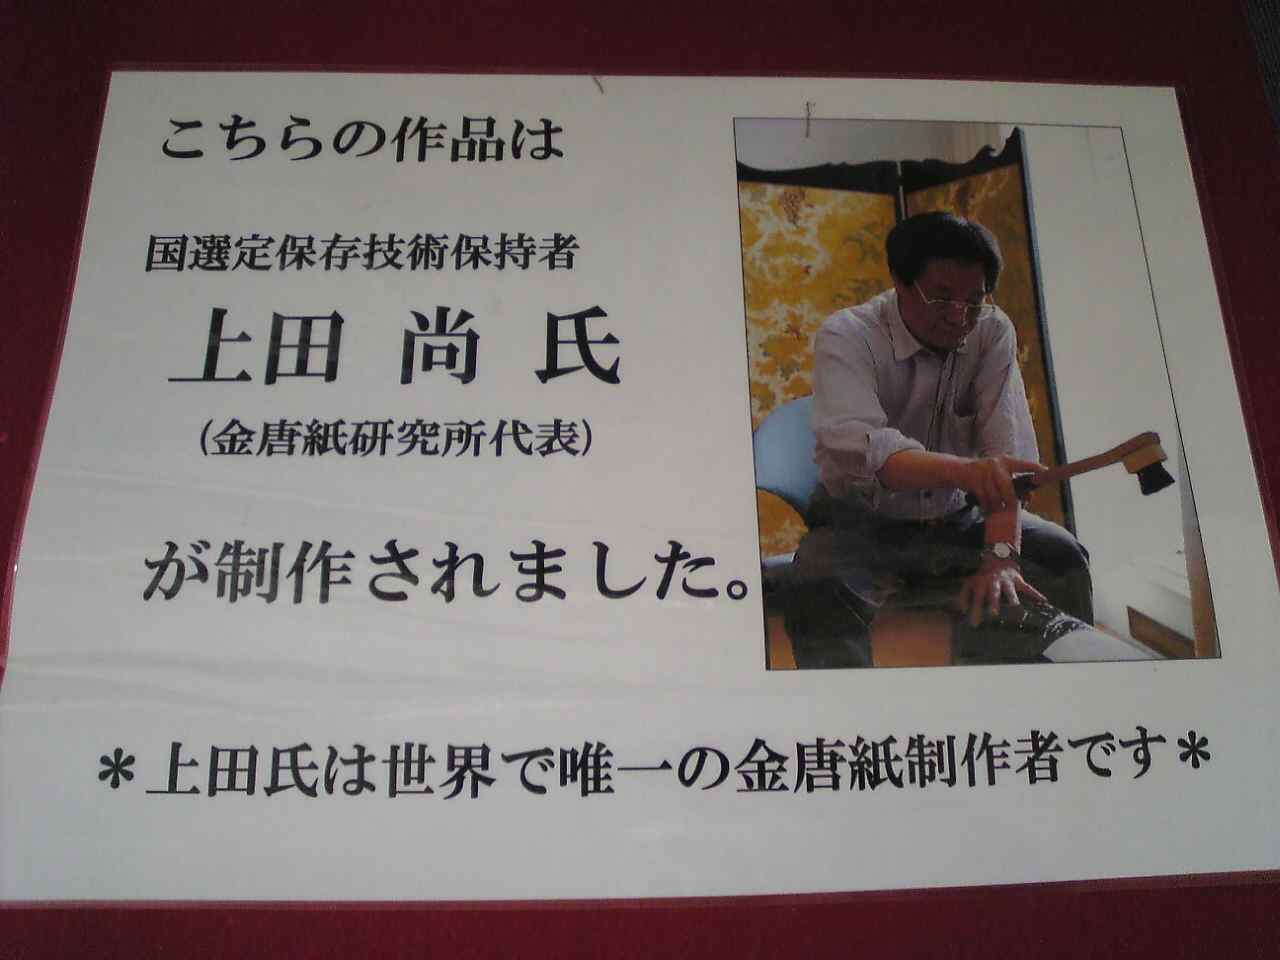 こちらの作品は
国選定保存技術保持者
上田 尚 氏
(金唐紙研究所代表)
が制作されました。
＊上田氏は世界で唯一の金唐紙制作者です＊